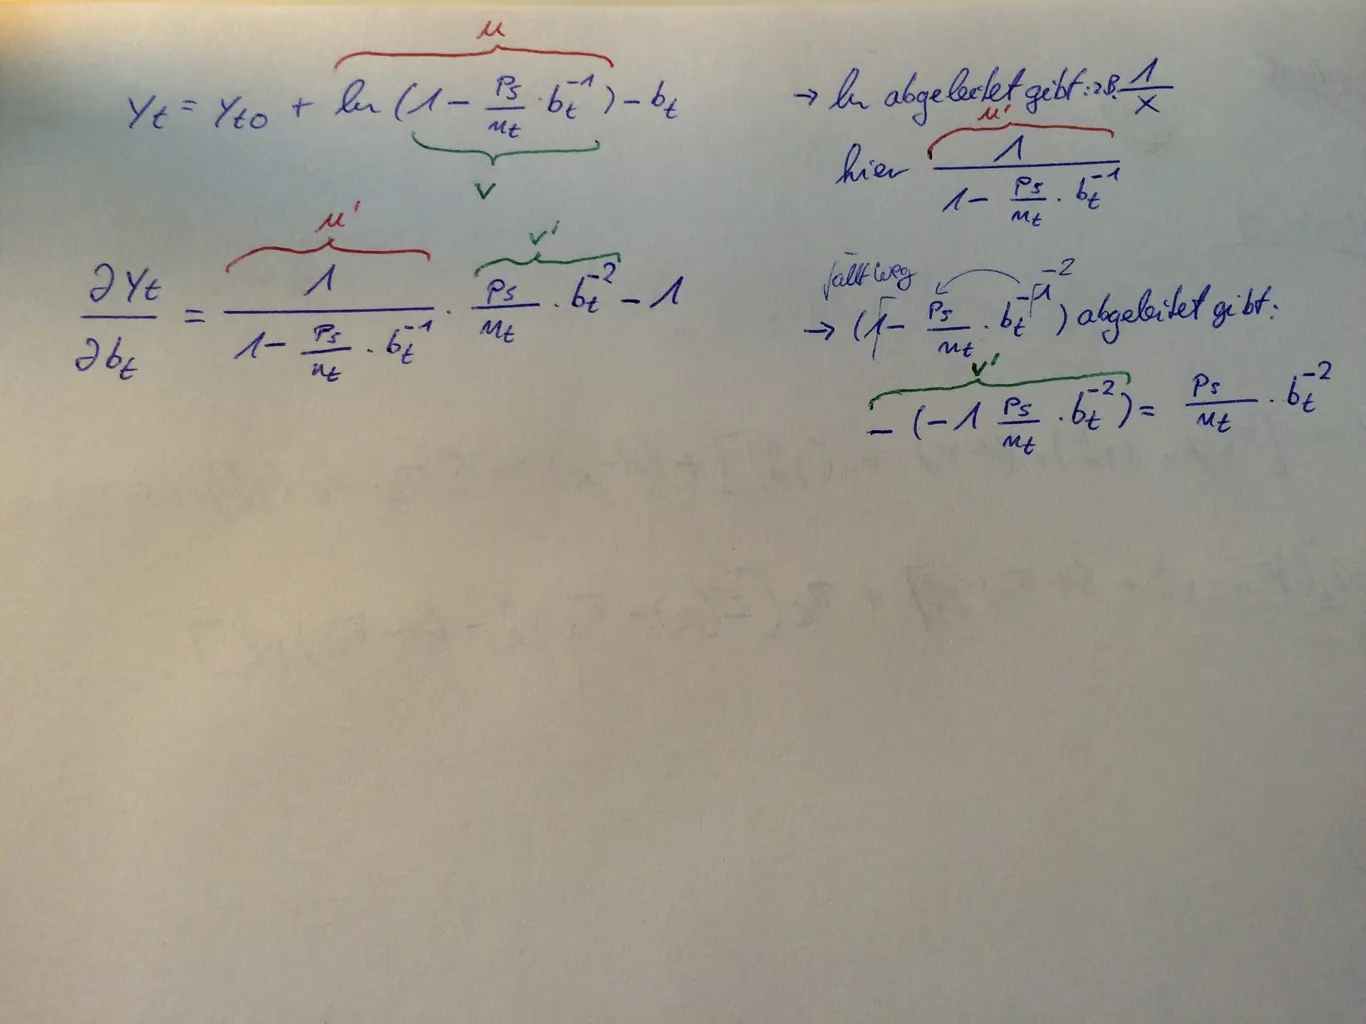 u
Yₜ = Yₜ₀ + ln (1 − Ps/nₜ · bₜ⁻¹) − bₜ
v
u' v'
∂Yₜ/∂bₜ = 1/(1 − Ps/nₜ · bₜ⁻¹) · Ps/nₜ · bₜ⁻² − 1
→ ln abgeleitet gibt: z.B. 1/x
u'
hier 1/(1 − Ps/nₜ · bₜ⁻¹)
fällt weg −2
→ (1 − Ps/nₜ · bₜ⁻¹) abgeleitet gibt:
v'
− (−1 Ps/nₜ · bₜ⁻²) = Ps/nₜ · bₜ⁻²